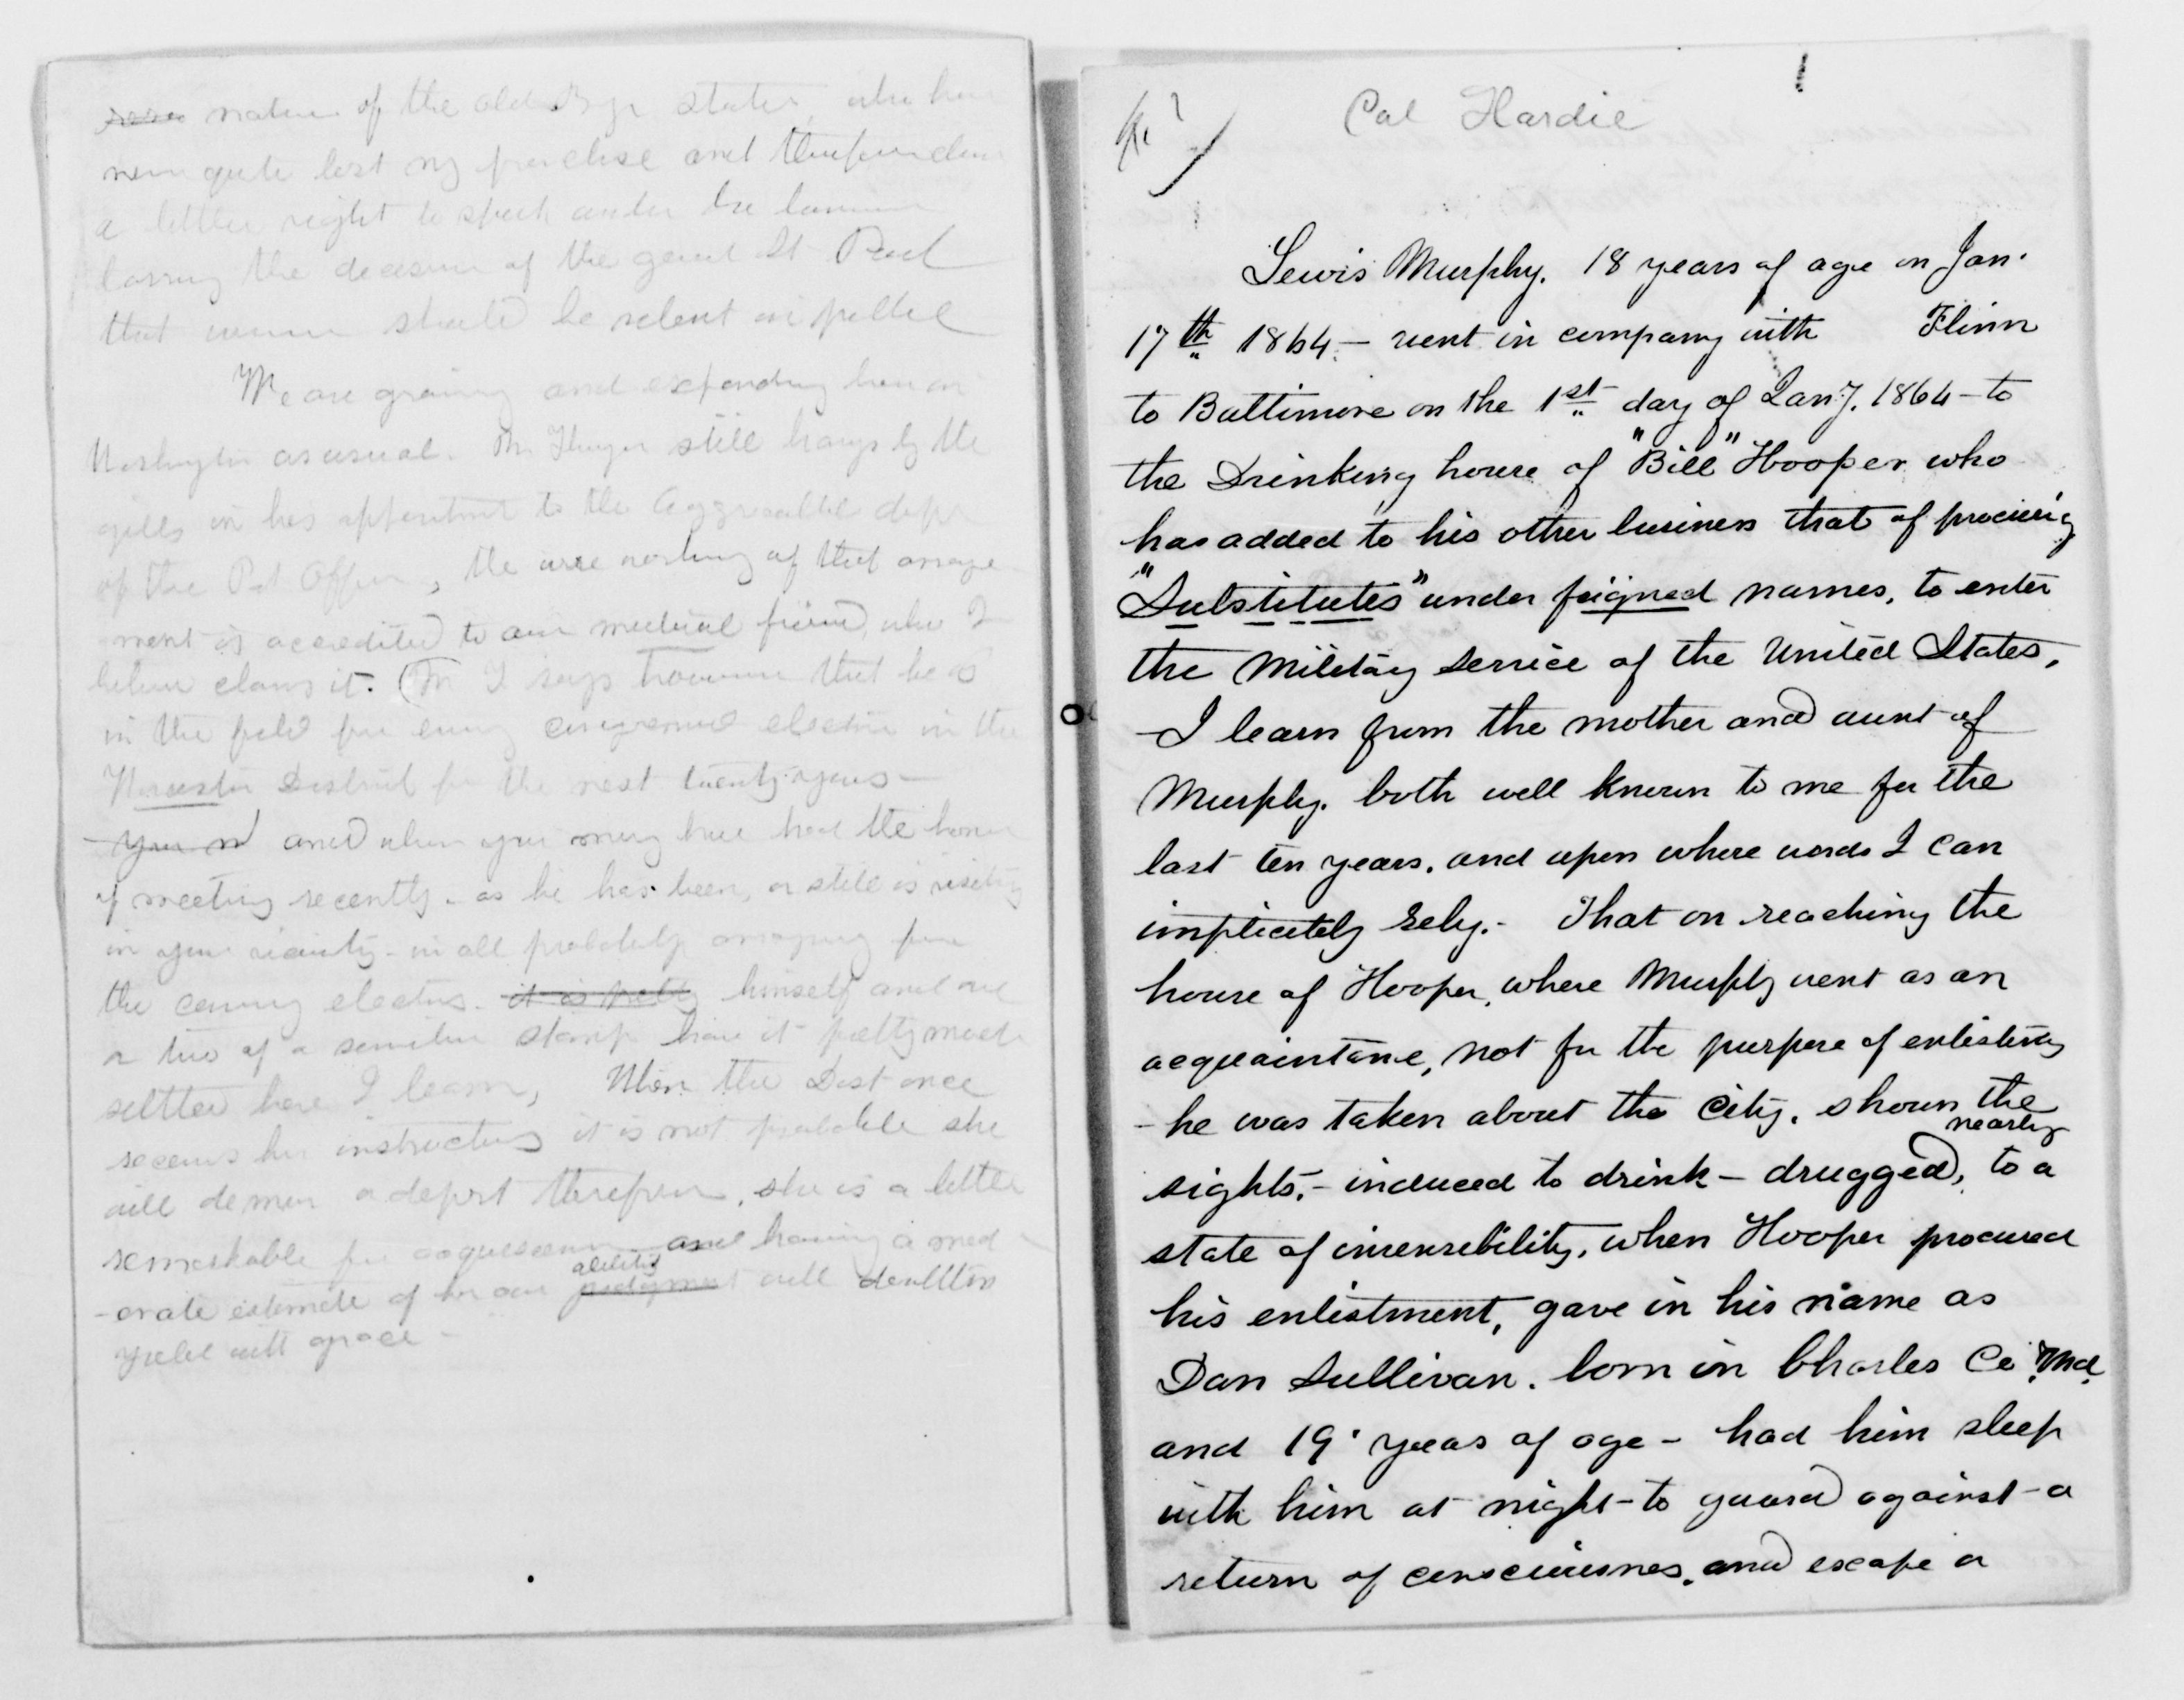 nature of the old Bay State, who have
never quite lost my franchise and therefore
a little right to speak under the
the decision of the great St Paul
that women should be silent in public
We are growing and expanding here in
Washington as usual. Mr Thayer still hangs by the
gills in his appointment to the
of the Pat Office, the
ment is accredited to our mutual friend, who I
believe claims it. (Mr T says however that he is
in the field for every election in the
Worcester District for the next twenty years -
you m and whom you may have had the honor
of meeting recently - as he has been, or still is visiting
in your vicinity - in all probability arranging for
the coming election. it is pretty himself and one
or two of a similar stamp have it pretty much
settled here I learn, When the Dist once
receives her instructions it is not probable she
will demur or depart therefrom, she is a little
remarkable for acquiescence and having a mod
ability
-erate estimate of her own judgment will doubtless
yield with grace -
Col Hardie
Lewis Murphy. 18 years of age on Jan.
17th 1864. - went in company with Flinn
to Baltimore on the 1st day of Jany. 1864 - to
the Drinking house of "Bill" Hooper who
has added to his other business that of procuring
"Substitutes" under feigned names, to enter
the Military Service of the United States,
- I learn from the mother and aunt of
Murphy. both well known to me for the
last ten years. and upon whose words I can
implicitely rely. - That on reaching the
house of Hooper, where Murphy went as an
acquaintance, not for the purpose of enlisting
- he was taken about the City. shown the
nearly
sights. - induced to drink - drugged, to a
state of insensibility, when Hooper procured
his enlistment, gave in his name as
Dan Sullivan. born in Charles Co Md.
and 19 years of age - had him sleep
with him at night - to guard against a
return of consciousnes, and escape a